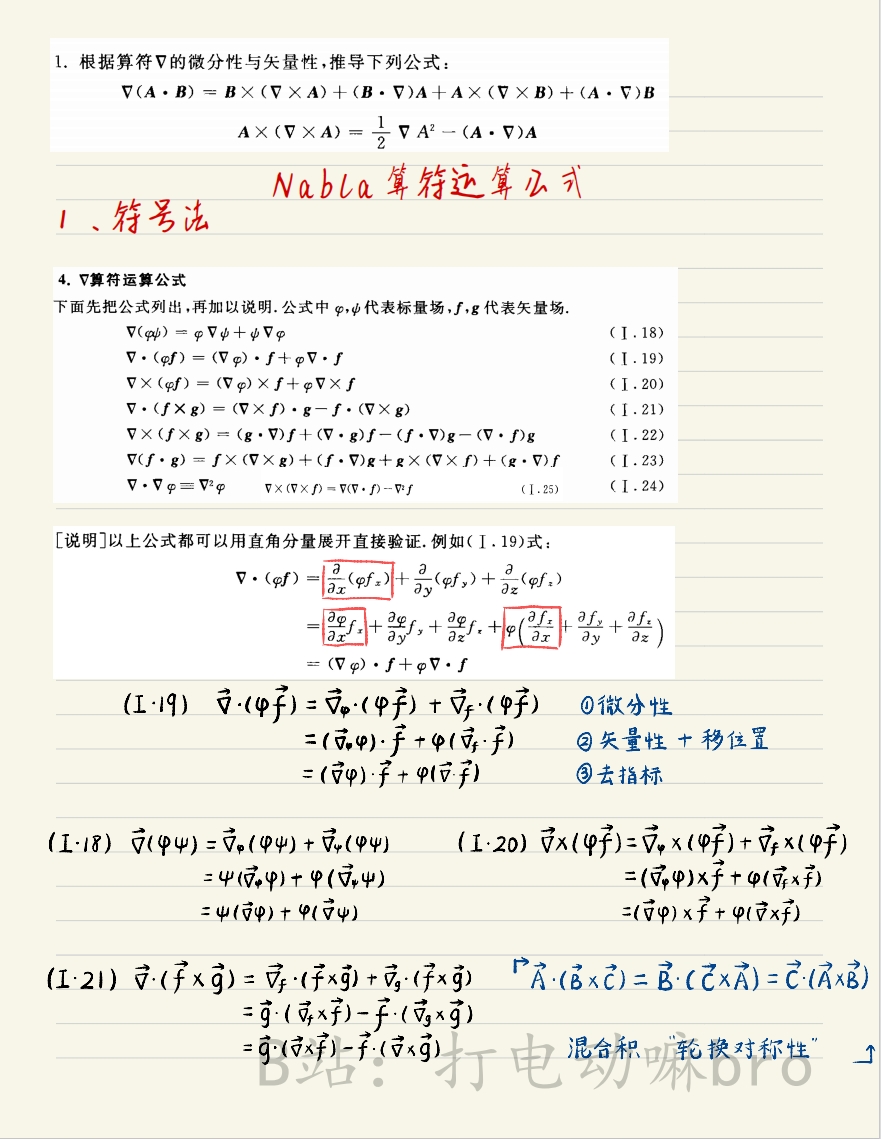 1. 根据算符∇的微分性与矢量性,推导下列公式:
∇(A·B) = B×(∇×A)+(B·∇)A+A×(∇×B)+(A·∇)B
A×(∇×A) = 1/2 ∇A² − (A·∇)A
Nabla算符运算公式
1、符号法
4. ∇算符运算公式
下面先把公式列出,再加以说明.公式中 φ,ψ代表标量场,f,g 代表矢量场.
∇(φψ) = φ∇ψ+ψ∇φ (Ⅰ.18)
∇·(φf) = (∇φ)·f+φ∇·f (Ⅰ.19)
∇×(φf) = (∇φ)×f+φ∇×f (Ⅰ.20)
∇·(f×g) = (∇×f)·g−f·(∇×g) (Ⅰ.21)
∇×(f×g) = (g·∇)f+(∇·g)f−(f·∇)g−(∇·f)g (Ⅰ.22)
∇(f·g) = f×(∇×g)+(f·∇)g+g×(∇×f)+(g·∇)f (Ⅰ.23)
∇·∇φ≡∇²φ ∇×(∇×f)=∇(∇·f)−∇²f (Ⅰ.25) (Ⅰ.24)
[说明]以上公式都可以用直角分量展开直接验证.例如(Ⅰ.19)式:
∇·(φf) = ∂/∂x(φfₓ)+∂/∂y(φf_y)+∂/∂z(φf_z)
= ∂φ/∂x fₓ+∂φ/∂y f_y+∂φ/∂z f_z+φ(∂fₓ/∂x+∂f_y/∂y+∂f_z/∂z)
= (∇φ)·f+φ∇·f
(Ⅰ·19) ∇⃗·(φf⃗) = ∇⃗_φ·(φf⃗) + ∇⃗_f·(φf⃗) ①微分性
= (∇⃗_φφ)·f⃗ + φ(∇⃗_f·f⃗) ②矢量性+移位置
= (∇⃗φ)·f⃗ + φ(∇⃗·f⃗) ③去指标
(Ⅰ·18) ∇⃗(φψ) = ∇⃗_φ(φψ) + ∇⃗_ψ(φψ)
= ψ(∇⃗_φφ) + φ(∇⃗_ψψ)
= ψ(∇⃗φ) + φ(∇⃗ψ)
(Ⅰ·20) ∇⃗×(φf⃗) = ∇⃗_φ×(φf⃗) + ∇⃗_f×(φf⃗)
= (∇⃗_φφ)×f⃗ + φ(∇⃗_f×f⃗)
= (∇⃗φ)×f⃗ + φ(∇⃗×f⃗)
(Ⅰ·21) ∇⃗·(f⃗×g⃗) = ∇⃗_f·(f⃗×g⃗) + ∇⃗_g·(f⃗×g⃗)
= g⃗·(∇⃗_f×f⃗) − f⃗·(∇⃗_g×g⃗)
= g⃗·(∇⃗×f⃗) − f⃗·(∇⃗×g⃗)
↱A⃗·(B⃗×C⃗) = B⃗·(C⃗×A⃗) = C⃗·(A⃗×B⃗)
混合积 "轮换对称性"
B站:打电动嘛bro